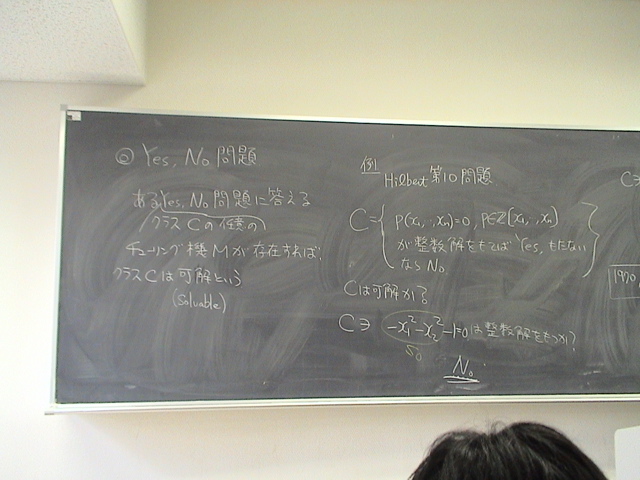 ◎ Yes, No 問題
あるYes, No 問題に答える
クラスCの任意の
チューリング機Mが存在すれば,
クラスCは可解という
(Soluable)
例
Hilbert 第10問題
C = { P(x₁, ‥, xₙ)=0, P∈ℤ[x₁, ‥, xₙ]
が整数解をもてば Yes, もたない
なら No. }
Cは可解か?
C∋ -x₁²-x₂²-1=0は整数解をもつか?
≦0
No.
C∋
1970,